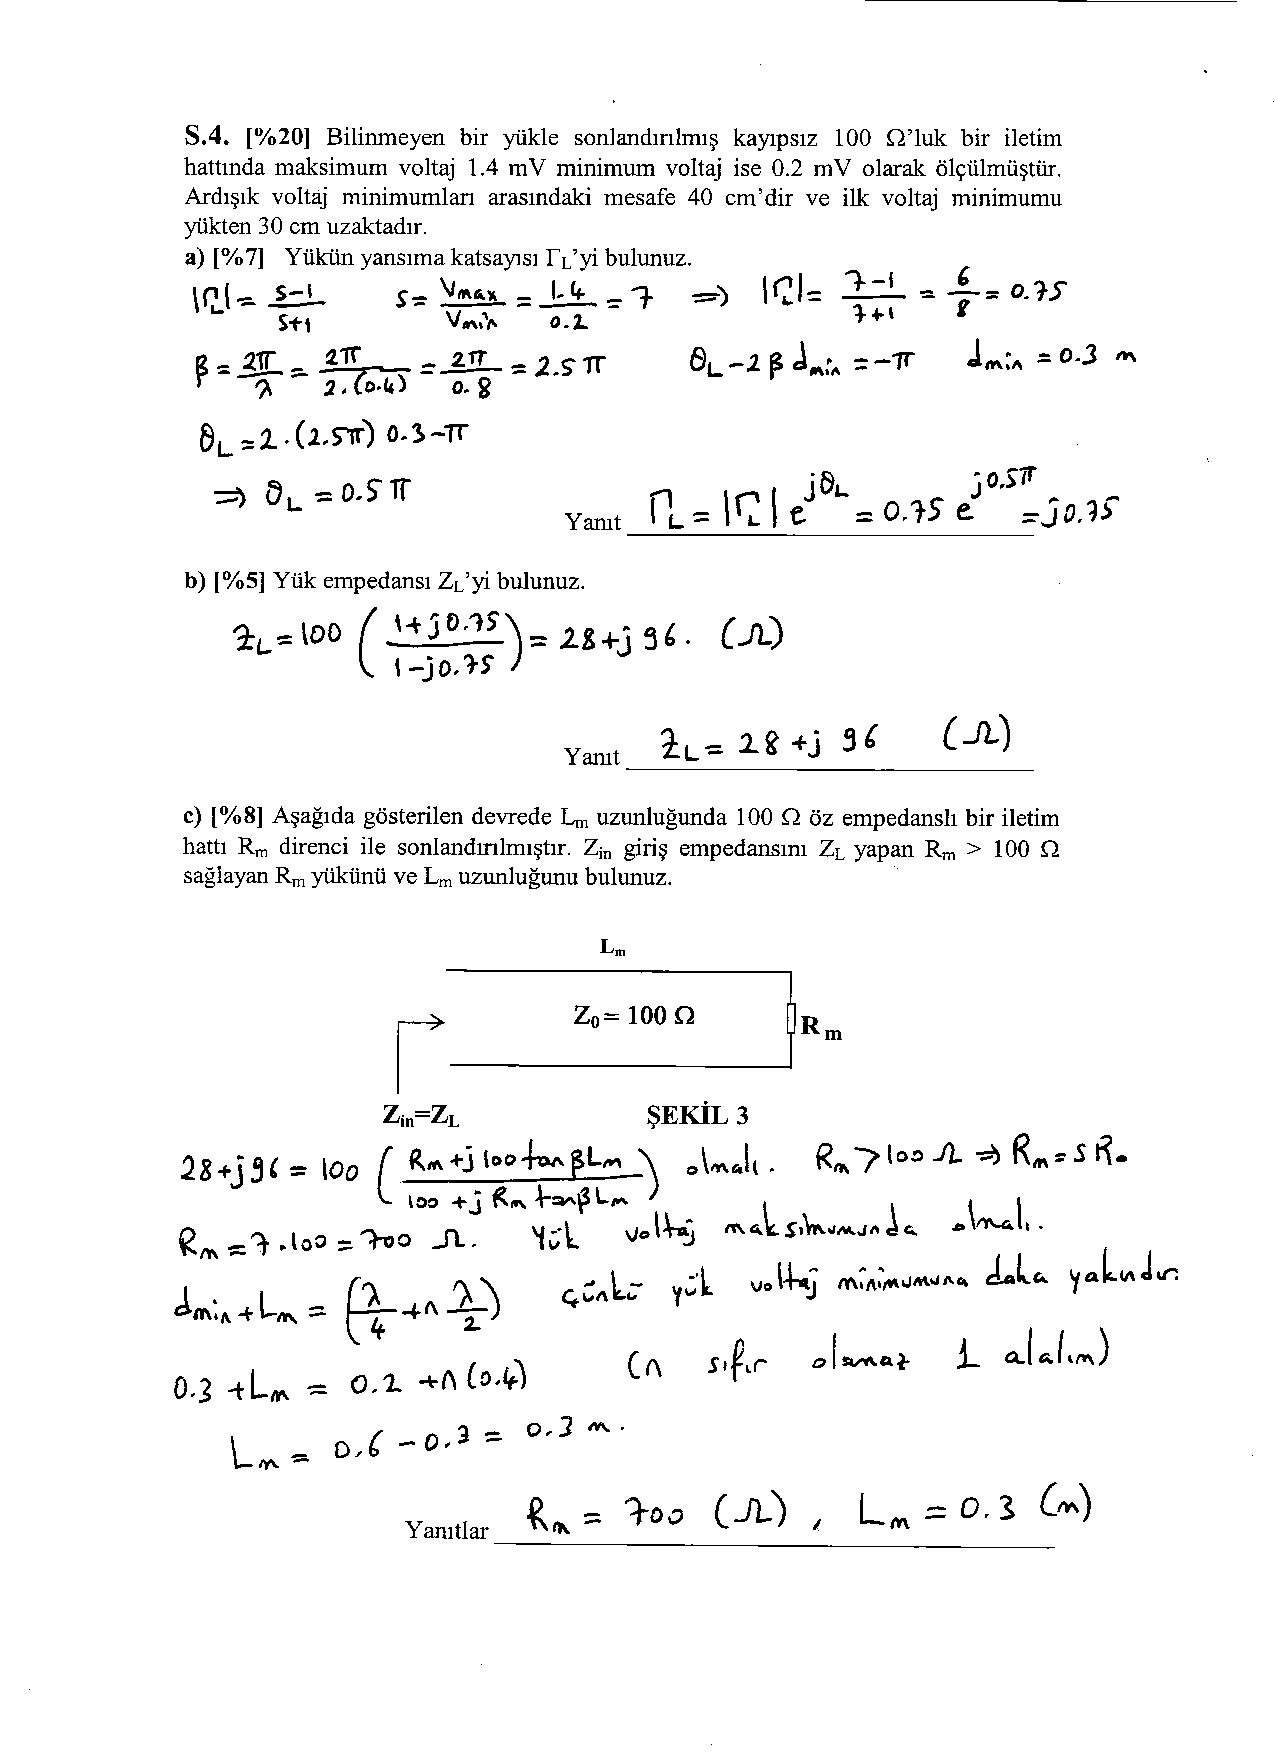 S.4. [%20] Bilinmeyen bir yükle sonlandırılmış kayıpsız 100 Ω'luk bir iletim
hattında maksimum voltaj 1.4 mV minimum voltaj ise 0.2 mV olarak ölçülmüştür.
Ardışık voltaj minimumları arasındaki mesafe 40 cm'dir ve ilk voltaj minimumu
yükten 30 cm uzaktadır.
a) [%7] Yükün yansıma katsayısı ΓL'yi bulunuz.
|ΓL| = S-1/S+1 S = Vmax/Vmin = 1.4/0.2 = 7 ⇒ |ΓL| = 7-1/7+1 = 6/8 = 0.75
β = 2π/λ = 2π/2.(0.4) = 2π/0.8 = 2.5π θL - 2βdmin = -π dmin = 0.3 m
θL = 2.(2.5π) 0.3 - π
⇒ θL = 0.5π
Yanıt ΓL = |ΓL| e^jθL = 0.75 e^j0.5π = j0.75
b) [%5] Yük empedansı ZL'yi bulunuz.
ZL = 100 (1+j0.75/1-j0.75) = 28+j96. (Ω)
Yanıt ZL = 28+j96 (Ω)
c) [%8] Aşağıda gösterilen devrede Lm uzunluğunda 100 Ω öz empedanslı bir iletim
hattı Rm direnci ile sonlandırılmıştır. Zin giriş empedansını ZL yapan Rm > 100 Ω
sağlayan Rm yükünü ve Lm uzunluğunu bulunuz.
Lm
Z0= 100 Ω
Rm
Zin=ZL ŞEKİL 3
28+j96 = 100 (Rm+j100tanβLm/100+jRm tanβLm) olmalı. Rm>100 Ω ⇒ Rm = S R0
Rm = 7.100 = 700 Ω. Yük voltaj maksimumunda olmalı.
dmin+Lm = (λ/4 + n λ/2) çünkü yük voltaj minimumuna daha yakındır
0.3 + Lm = 0.2 + n(0.4) (n sıfır olamaz 1 alalım)
Lm = 0.6 - 0.3 = 0.3 m.
Yanıtlar Rm = 700 (Ω) , Lm = 0.3 (m)